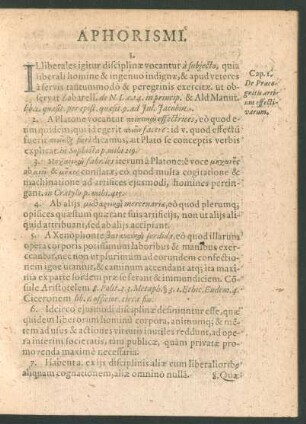 APHORISMI.
1.
Illiberales igitur disciplinæ vocantur à subjecto, quia
liberali homine & ingenuo indignæ, & apud veteres
à servis tantummodò & peregrinis exercitæ. ut ob-
servat Zabarell. de N. L. c. 14. in princip. & Ald Manut.
lib. 2. quæsit. per epist. quæsit 9. ad Jul. Jacobin.
Cap. 1.
De Præco-
gnitis artiũ
effecti-
varum.
2. A Platone vocantur effectrices, eò quod
eum quidem, qui id egerit facere: id v. quod effectũ
fuerit fieri dicamus, ut Plato se conceptis verbis
explicat in Sophista p. mihi 219.
3. fabriles iterum à Platone è voce
abum & conatus, eò quod multa cogitatione &
machinatione ad artifices ejusmodi, homines pertin-
gant. in Cratylo p. mihi. 415.
4. Ab aliis mercenariæ, eò quod plerumq;
opifices quæstum quærant suis artificiis, non ut alijs ali-
quid attribuant, sed ab aliis accipiant.
5. A Xenophonte sordidæ, eò quod illarum
opera corpotis potissimum laboribus & manibus exer-
ceantur: nec non ut plurimum ad eorundem confectio-
nem ignis requiratur, & carbonum accendantur atq; ita maxi-
ma ex parte sordem præ se ferant & immundiciem. Cõ-
sule Aristotelem 8. Polit. c. 2. 5. Metaph. §. 1. Ethic. Eudem. 4.
Ciceronem lib. 1. officior. circa fin.
6. Idcirco ejusmodi disciplinæ definiuntur esse, quæ
quidem liberorum hominũ corpora, animumq; & mẽ-
tem ad usus & actiones virtutis inutiles reddunt, ad ope-
ra interim societati, tam publicæ, quam privatæ pro-
morenda maximè necessaria.
7. Habent a. exijs disciplinis aliæ cum liberalioribus
aliquam cognationem, aliæ omninò nullã.
8. Quæ